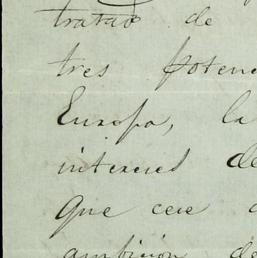 tratado de
tres poten
Europa, la
interes de
que cese
ambición de